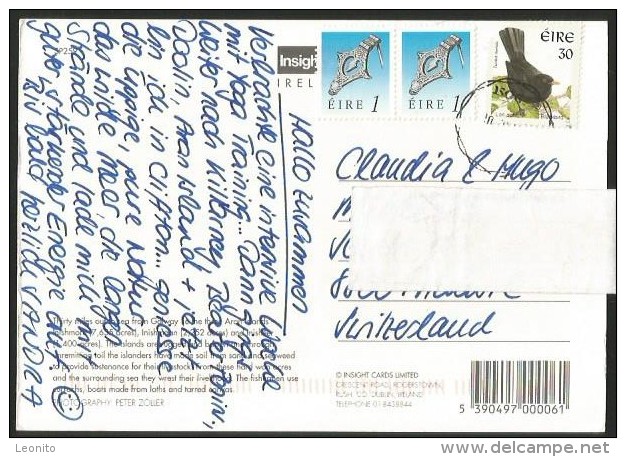 Hallo zusammen
Verbrachte eine intensive Woche
mit Yoga Training... Dann
weiter nach Killarney,
Doolin, Aran Island + jetzt
bin ich in Clifton... geniesse
die üppige, pure Natur,
das wilde Meer, die langen
Strände und lade mich mit
auf
bis bald herzlich SANDRA
Insigh
IREL
ÉIRE 1
ÉIRE 1
ÉIRE
30
Claudia & Hugo
Switzerland
Thirty miles out to sea from Galway lie the three Aran Islands -
Inishmore (7,635 acres), Inishmaan (2,252 acres) and Inisheer
(1,400 acres). The islands are rugged and barren but through
unremitting toil the islanders have made soil from sand and seaweed
to provide sustenance for their livestock. From these hard won acres
and the surrounding sea they wrest their livelihood. The fishermen use
currachs, boats made from laths and tarred canvas.
PHOTOGRAPHY PETER ZÖLLER
© INSIGHT CARDS LIMITED
CRESCENT ROAD, ROGERSTOWN,
RUSH, CO. DUBLIN, IRELAND
TELEPHONE 01-8438844
5 390497 000061
Leonito
www.delcampe.net